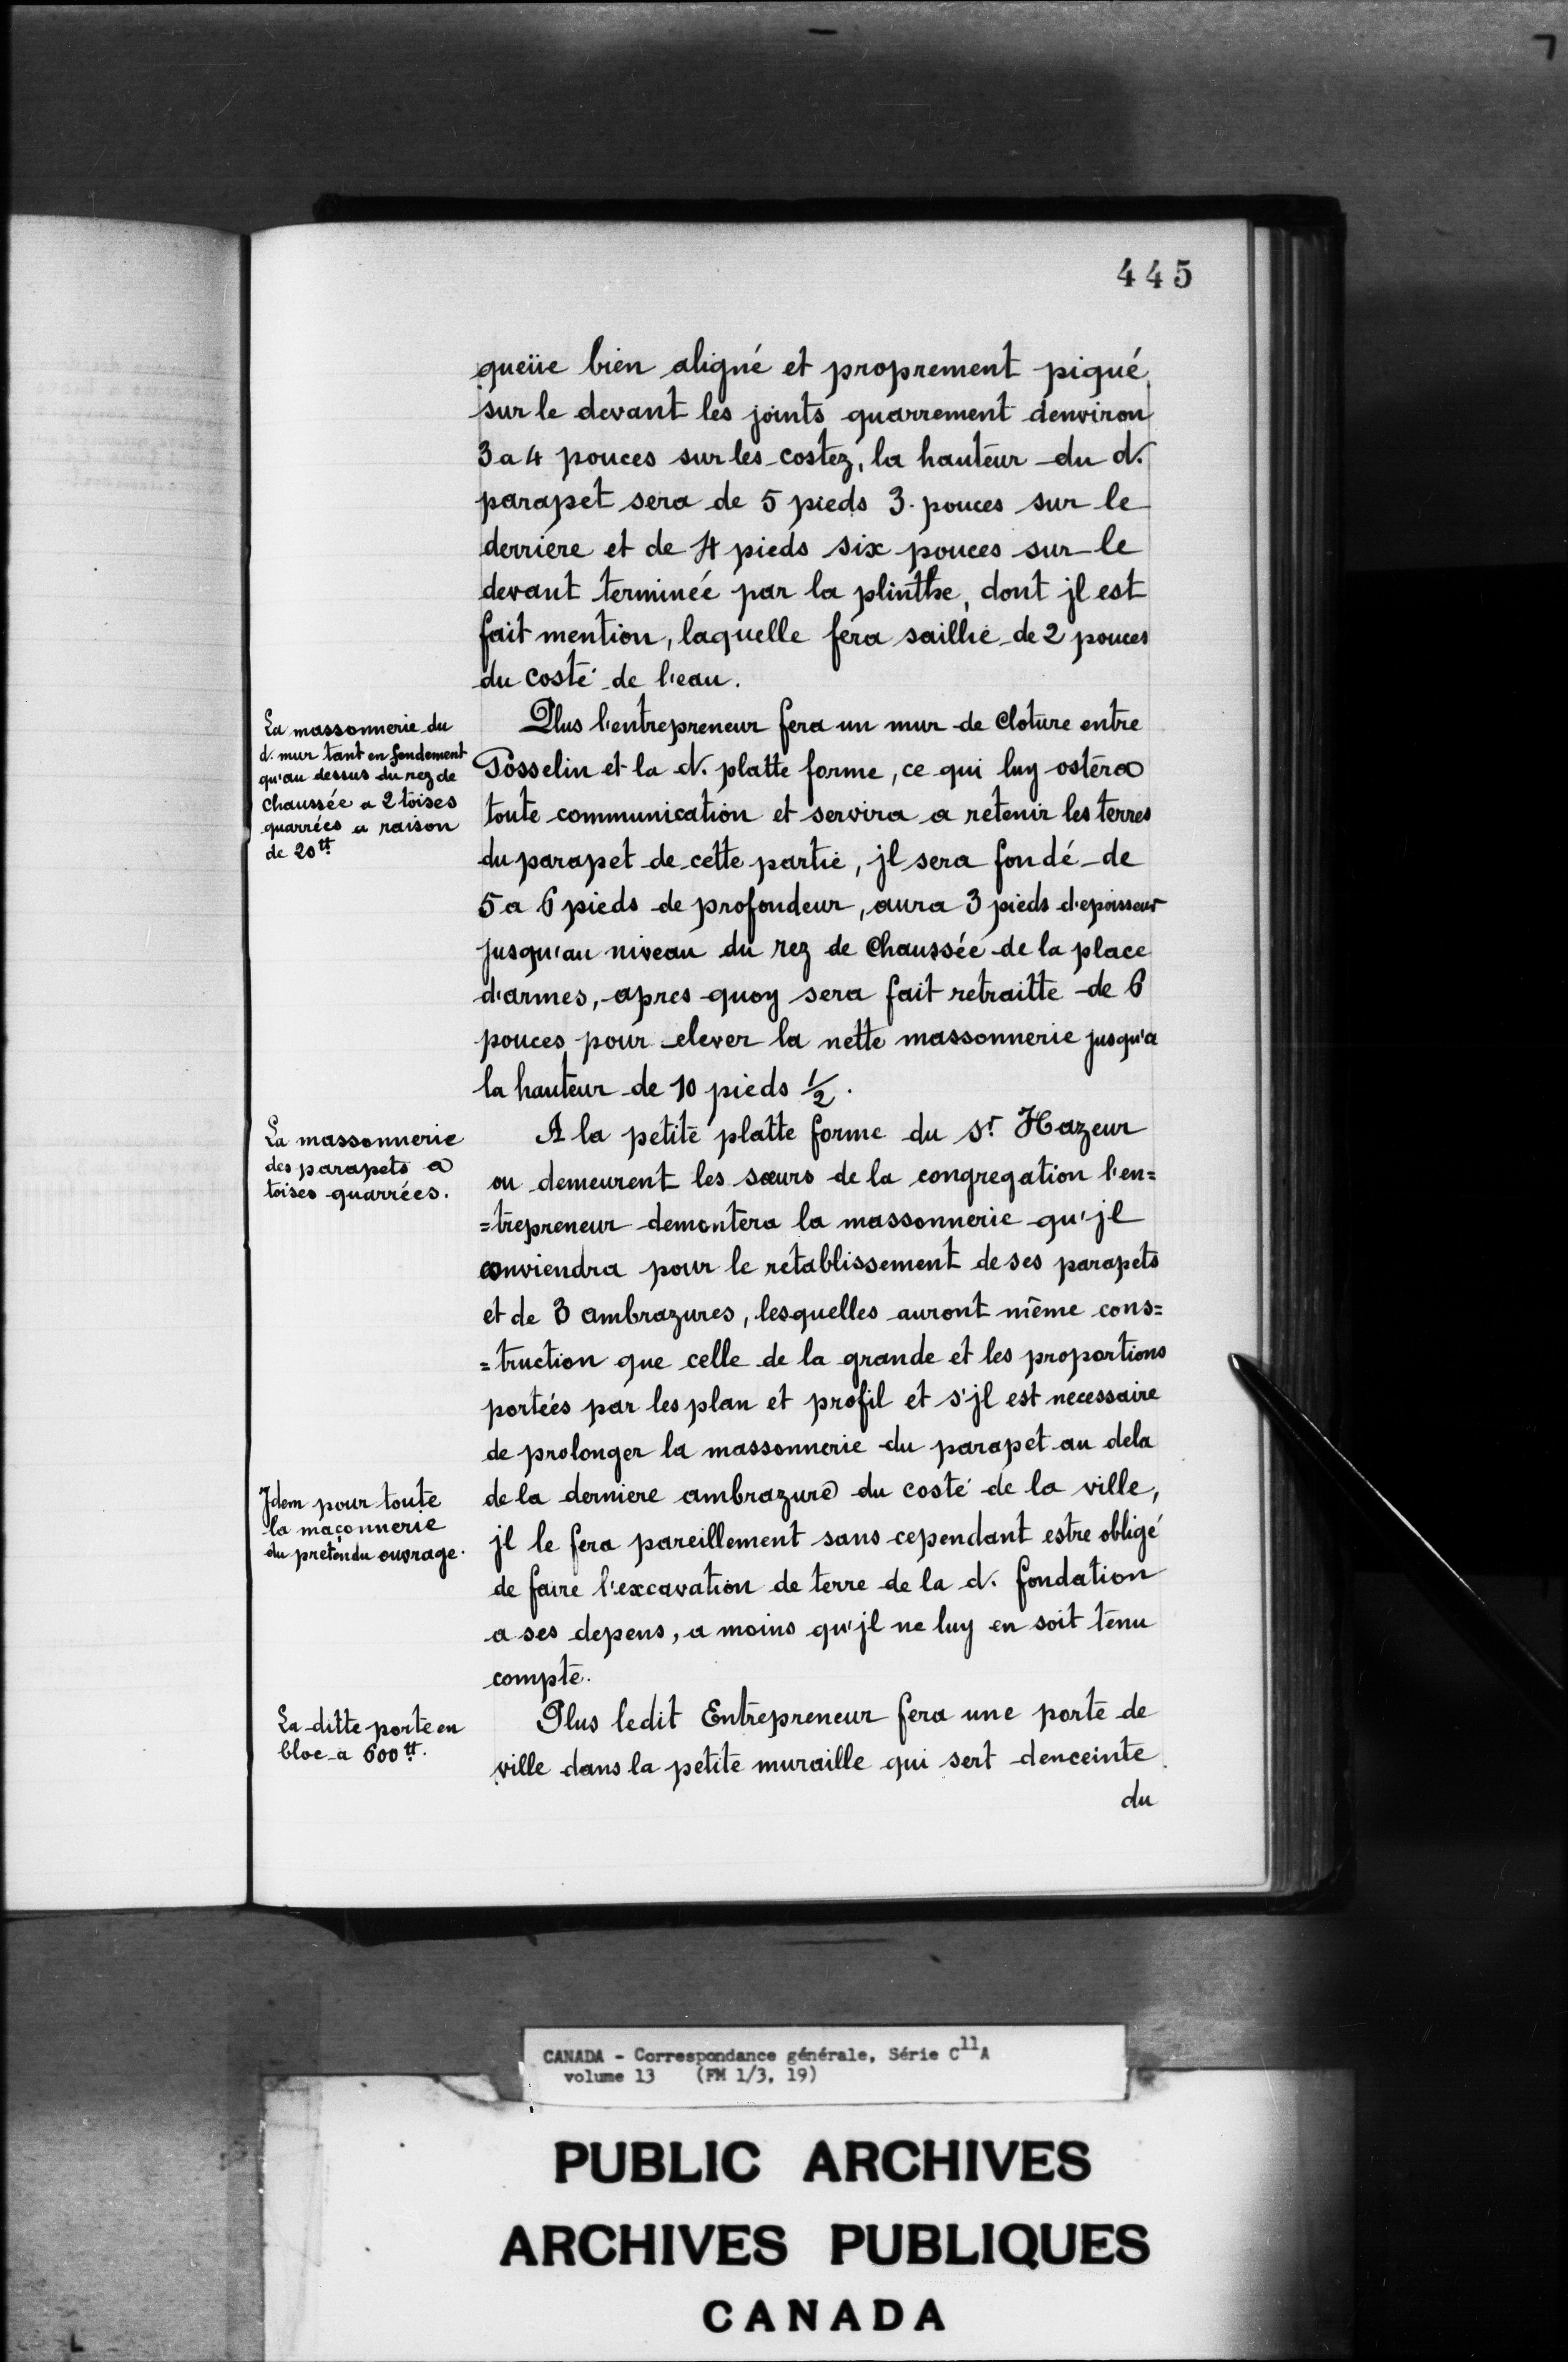 445
queüe bien aligné et proprement piqué
sur le devant les joints quarrement denviron
3 a 4 pouces sur les costez, la hauteur du d.
parapet sera de 5 pieds 3. pouces sur le
derriere et de 4 pieds six pouces sur le
devant terminée par la plinthe, dont jl est
fait mention, laquelle fera saillie de 2 pouces
du costé de l'eau.
La massonnerie du
d. mur tant en fondement
qu'au dessus du rez de
chaussée a 2 toises
quarrées a raison
de 20 tt
Plus l'entrepreneur fera un mur de cloture entre
Gosselin et la d. platte forme, ce qui luy ostera
toute communication et servira a retenir les terres
du parapet de cette partie, jl sera fondé de
5 a 6 pieds de profondeur, aura 3 pieds d'epoisseur
jusqu'au niveau du rez de chaussée de la place
d'armes, apres quoy sera fait retraitte de 6
pouces pour elever la nette massonnerie jusqu'a
la hauteur de 10 pieds 1/2.
La massonnerie
des parapets a
toises quarrées.
A la petite platte forme du Sr. Hazeur
ou demeurent les sœurs de la congregation l'en=
=trepreneur demontera la massonnerie qu'jl
conviendra pour le retablissement de ses parapets
et de 3 ambrazures, lesquelles auront même cons=
=truction que celle de la grande et les proportions
portées par les plan et profil et s'jl est necessaire
de prolonger la massonnerie du parapet au dela
de la derniere ambrazure du costé de la ville,
jl le fera pareillement sans cependant estre obligé
de faire l'excavation de terre de la d. fondation
a ses depens, a moins qu'jl ne luy en soit tenu
compte.
Jdem pour toute
la maçonnerie
du pretendu ouvrage.
La ditte porte en
bloc a 600 tt.
Plus ledit Entrepreneur fera une porte de
ville dans la petite muraille qui sert denceinte
du
CANADA - Correspondance générale, Série C11A
volume 13 (FM 1/3, 19)
PUBLIC ARCHIVES
ARCHIVES PUBLIQUES
CANADA